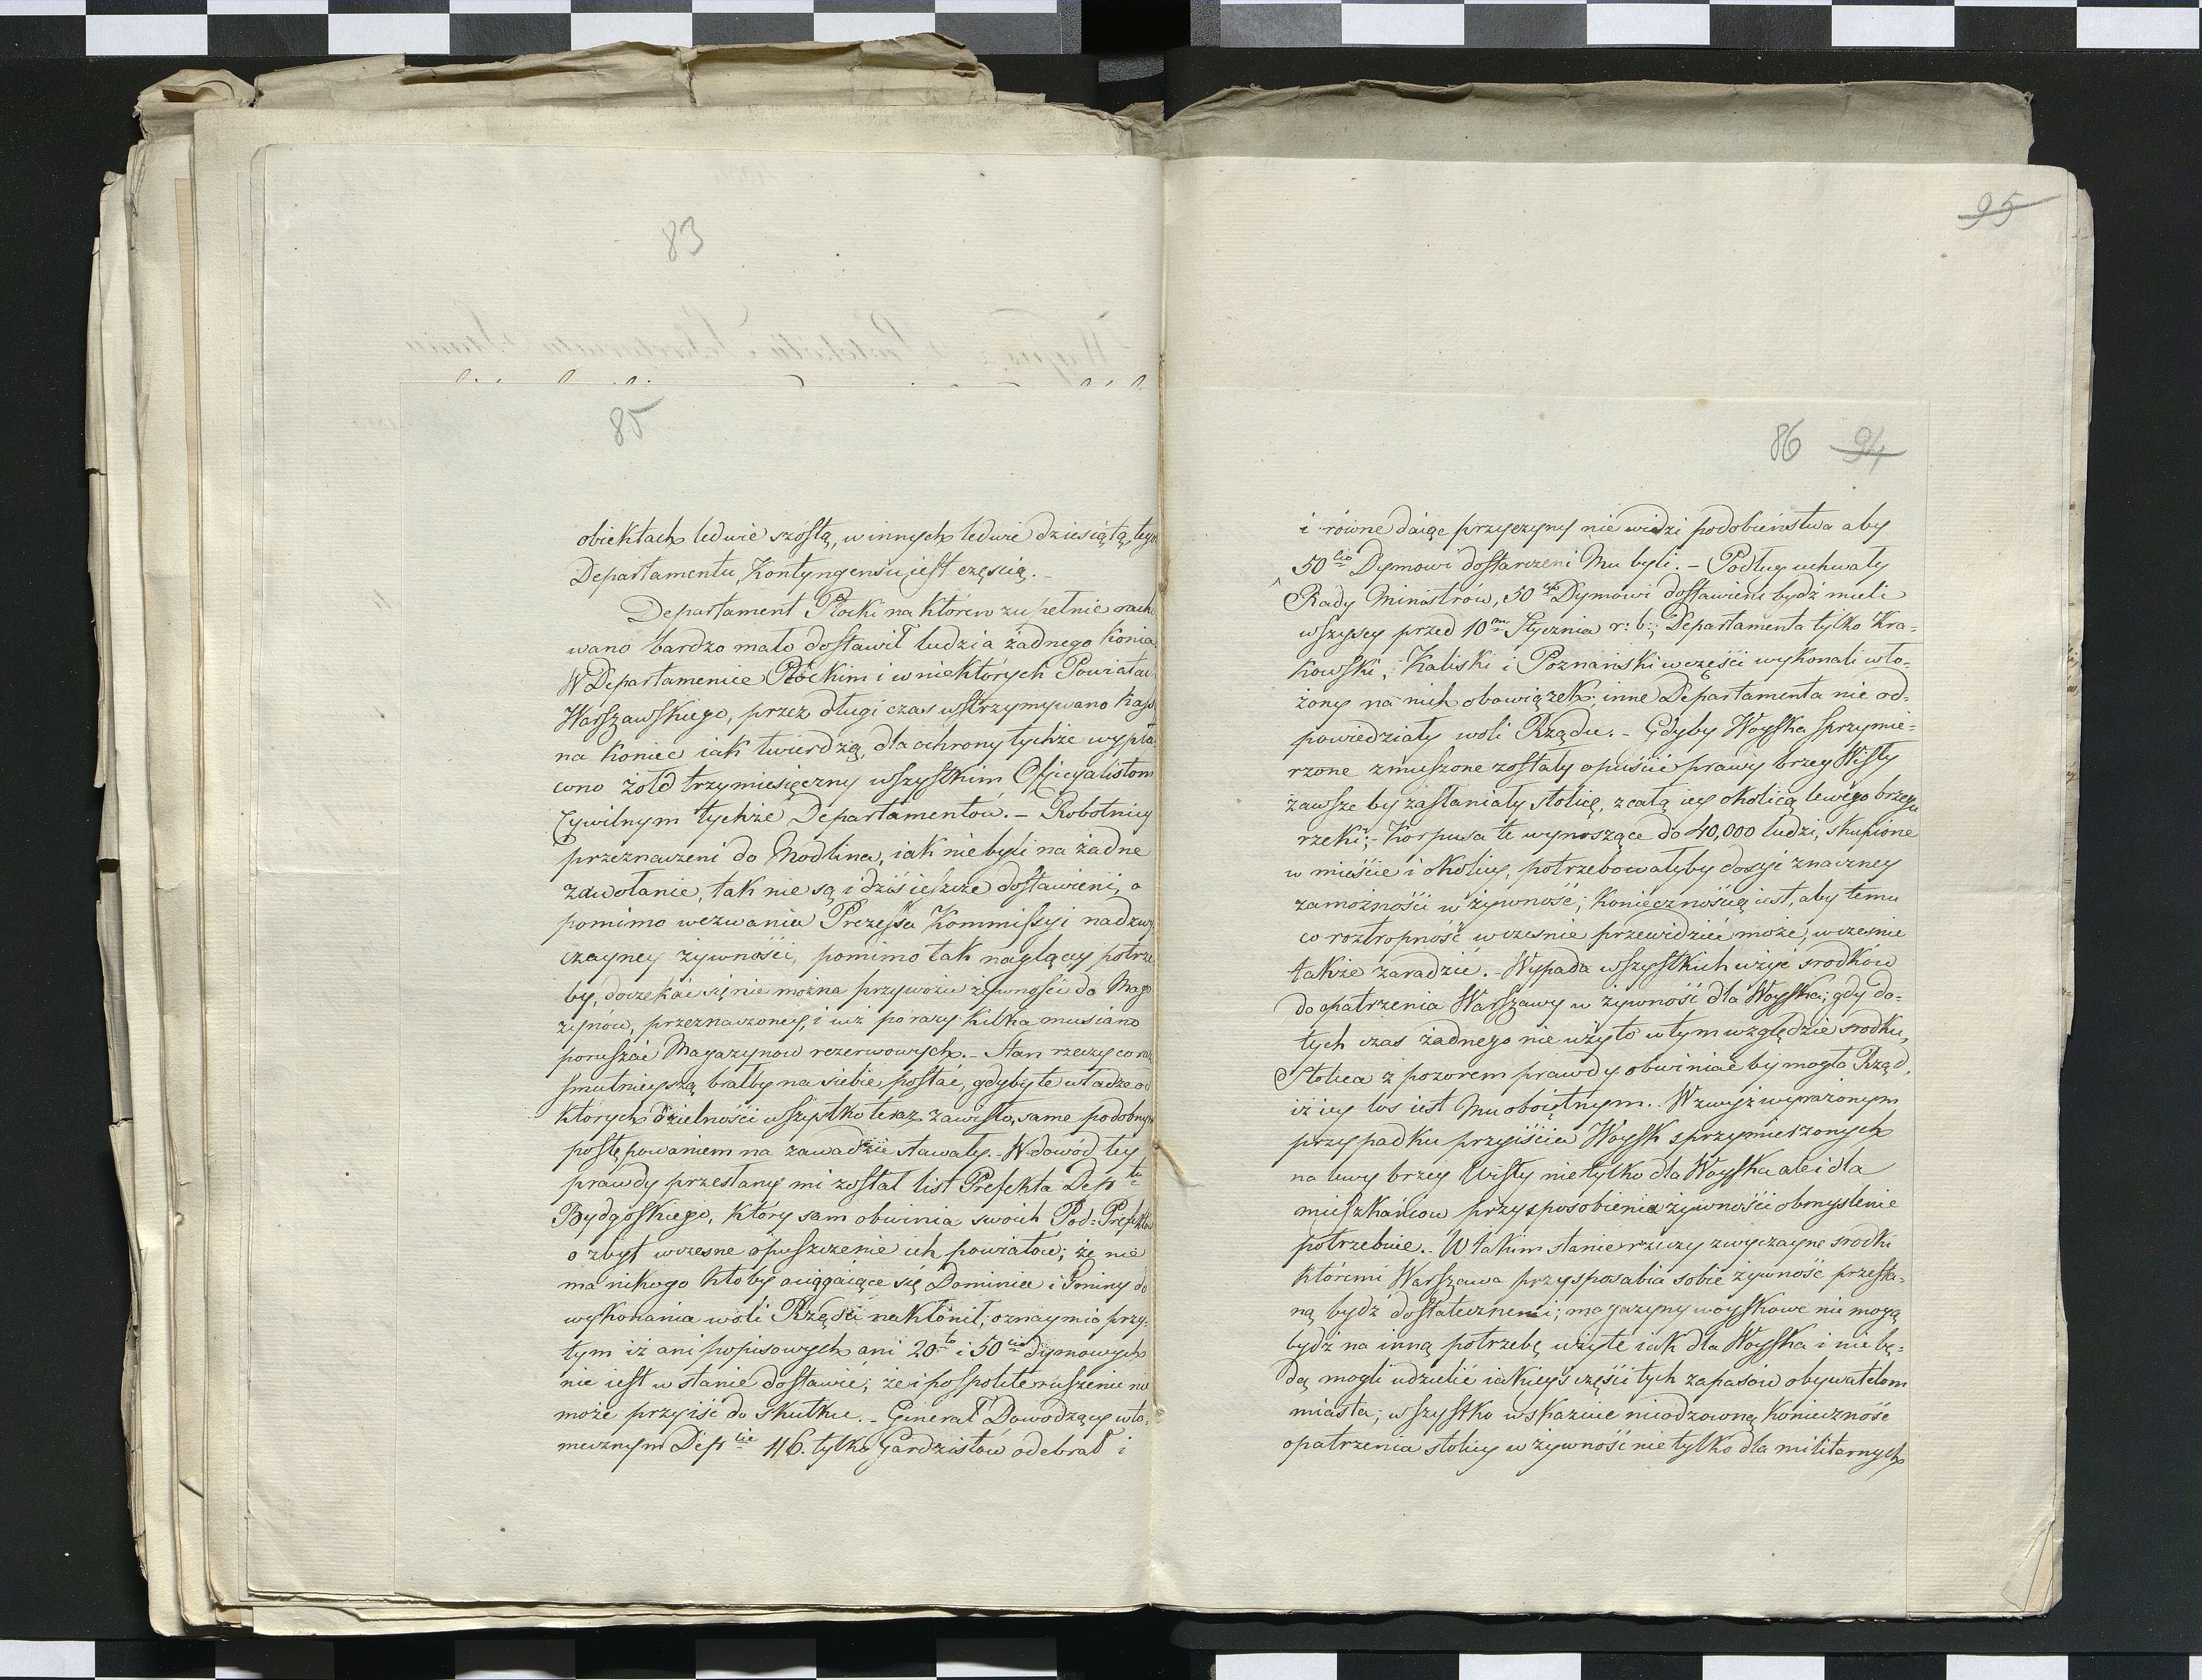 83
85
obiektach ledwie szóstą, w innych ledwie dziesiątą, tego
Departamentu Kontyngensu, iest częscią. -
Departament Płocki na którém zupełnie rach
wano bardzo mało dostawił ludzi a żadnego Konia
W Departamencie Płockim i w niektórych Powiatac
Warszawskiego, przez długi czas wstrzymywano Kass
na koniec iak twierdzą, dla ochrony tychże wypła
cono żołd trzymiesięczny wszystkim Officyalistom
Cywilnym tychże Departamentów. - Robotnicy
przeznaczeni do Modlina, iak nie byli na żadne
zawołanie, tak nie są i dziś ieszcze dostawieni, a
pomimo wezwania Prezessa Kommissyi nadzwy
czayney żywności, pomimo tak naglącey potrze
by, doczekać się nie można przywozu żywności do Maga
zynów, przeznaczoney, i iuż po razy kilka musiano
poruszać Magazynow rezerwowych. - Stan rzeczy co raz
smutnieyszą brałby na siebie postać, gdyby te władze od
których dzielności wszystko teraz zawisło, same podobnym
postępowaniem na zawadzie stawały. - W dowód tey
prawdy przesłany mi został list Prefekta Dep tu
Bydgoskiego, który sam obwinia swoich Pod=Prefektów
o zbyt wczesne opuszczenie ich powiatów; że nie
ma nikogo ktoby ociągaiące się Dominia i Gminy do
wykonania woli Rządu nakłonił; oznaymia przy
tym iż ani popisowych ani 20to i 50cio dymowych
nie iest w stanie dostawić; że i pospolite ruszenie nie
może przyiść do skutku. - Generał Dowodzący w to
mecznym Dep cie 116. tylko Gardzistów odebrał i
95
86 94
i równe daiąc przyczyny nie widzi podobieństwa aby
50cio Dymowi dostarczeni Mu byli. - Podług uchwały
Rady Ministrów, 50cio Dymowi dostawieni bydź mieli
wszyscy przed 10m Stycznia r: b:; Departamenta tylko Kra=
kowski, Kaliski i Poznański w części wykonali wło=
żony na nich obowiązek; inne Departamenta nie od=
powiedziały woli Rządu. - Gdyby Woyska sprzymie=
rzone zmuszone zostały opuścić prawy brzeg Wisły
zawsze by zasłaniały stolicę, z całą iey okolicą lewego brzegu
rzeki; - Korpusa te wynoszące do 40,000 ludzi, skupione
w mieście i okolicy, potrzebowałyby dosyć znaczney
zamożności w żywność; koniecznością iest, aby temu
co roztropność wczesnie przewidzieć może, wczesnie
także zaradzić. - Wypada wszystkich użyć srodków
do opatrzenia Warszawy w żywność dla Woyska; gdy do=
tych czas żadnego nie użyto w tym względzie srodku,
Stolica z pozorem prawdy obwiniać by mogła Rząd,
iż iey los iest Mu oboiętnym. - W zwyż wyrażonym
przypadku przeyścia Woysk sprzymierzonych
na lewy brzeg Wisły nie tylko dla Woyska ale i dla
mieszkańców przysposobienia żywności obmyslenie
potrzebne. - W takim stanie rzeczy zwyczayne srodki
któremi Warszawa przysposabia sobie żywność przesta=
ną bydź dostatecznemi; magazyny woyskowe nie mogą
bydź na inną potrzebę użyte iak dla Woyska i nie bę=
dą mogli udzielić iakieyś części tych zapasów obywatelom
miasta; wszystko wskazuie nieodzowną konieczność
opatrzenia stolicy w żywność nie tylko dla militarnych